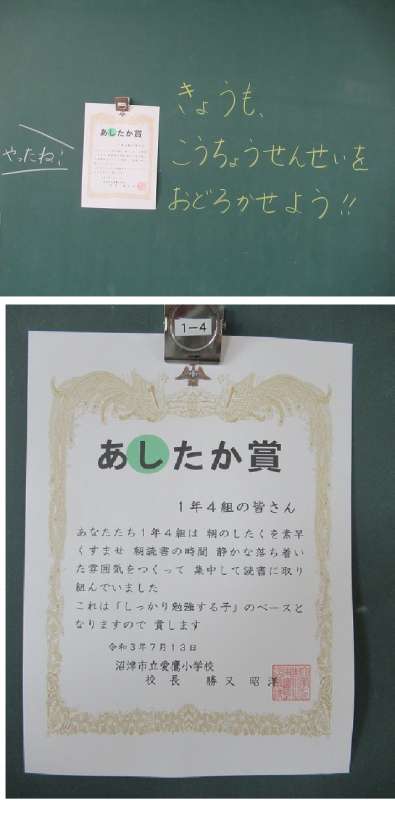 きょうも、
こうちょうせんせいを
おどろかせよう!!
やったね!
あしたか賞
1-4
あしたか賞
1年4組の皆さん
あなたたち1年4組は 朝のしたくを素早
くすませ 朝読書の時間 静かな落ち着い
た雰囲気をつくって 集中して読書に取り
組んでいました
これは「しっかり勉強する子」のベースと
なりますので 賞します
令和3年7月13日
沼津市立愛鷹小学校
校長 勝又昭洋